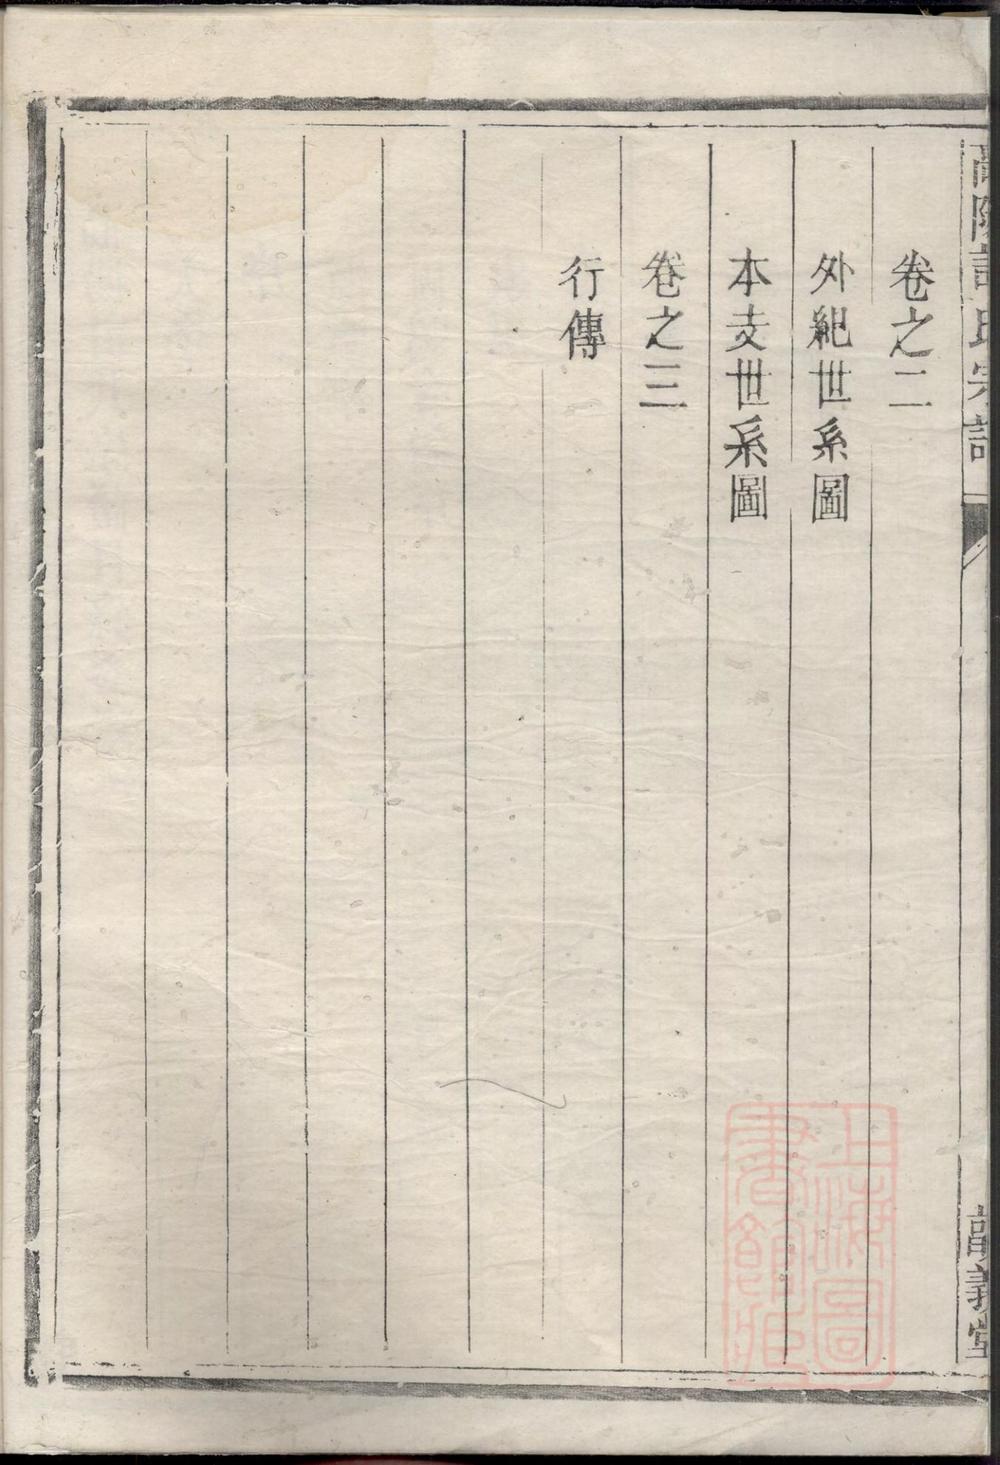 卷之二
外紀世系圖
本支世系圖
卷之三
行傳
上海圖
書館藏